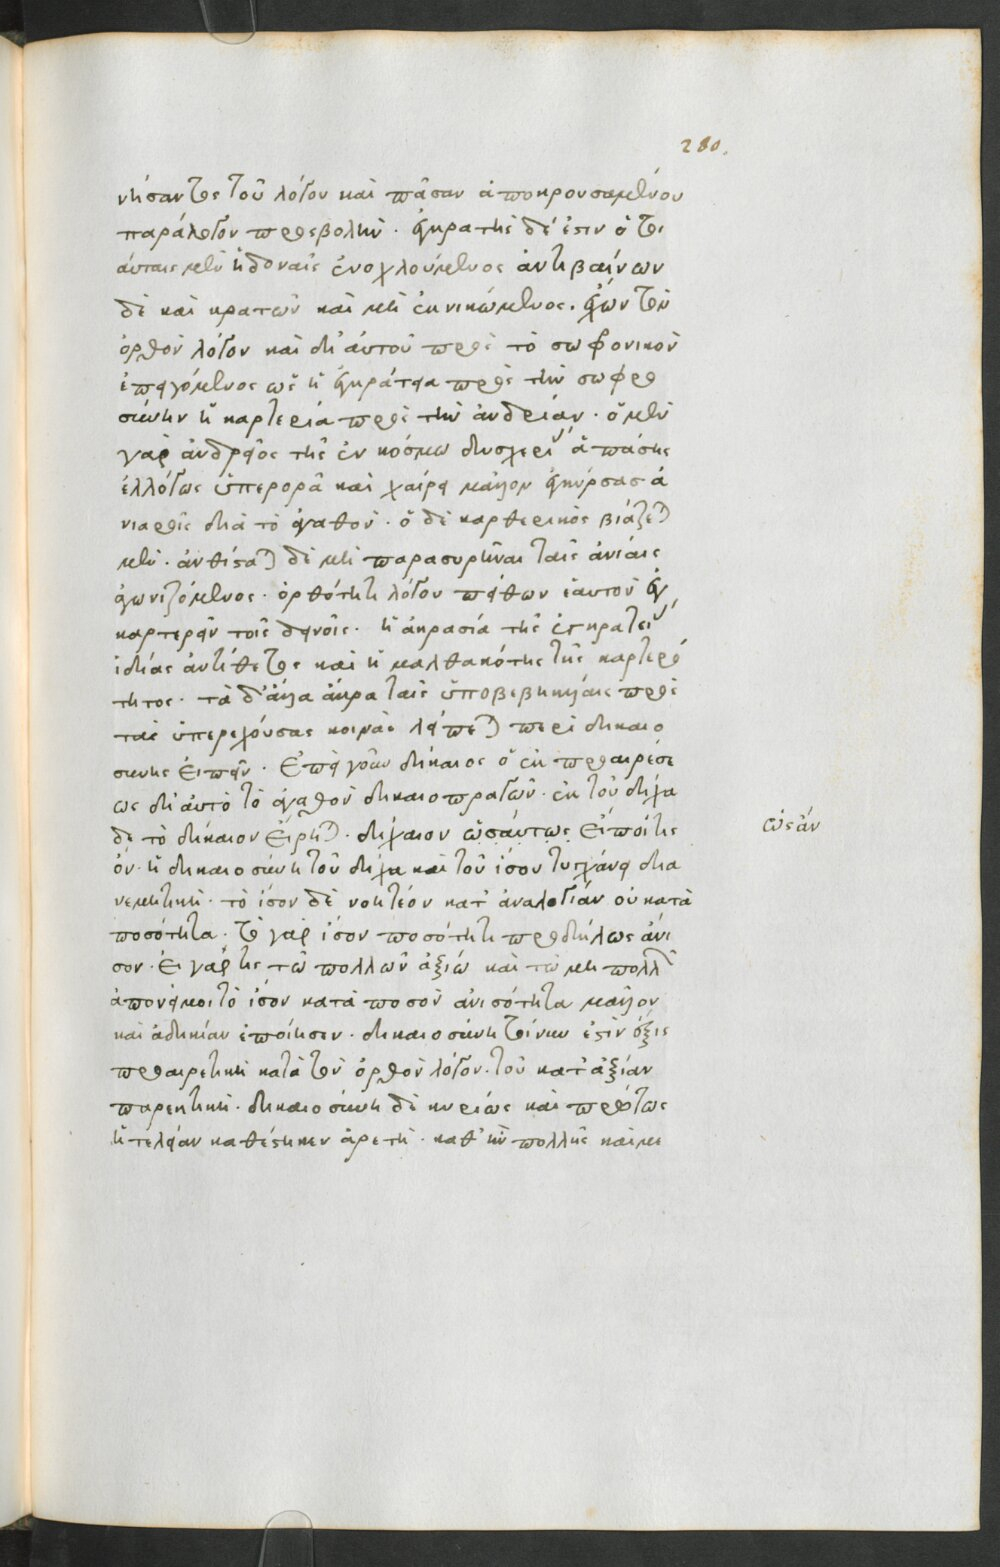 280.
νήσαντος τοῦ λόγου καὶ πᾶσαν ἀποκρουσαμένου
παράλογον προσβολήν. ἐγκρατὴς δέ ἐστιν ὁ τοι
αύταις μὲν ἡδοναῖς ἐνοχλούμενος ἀντιβαίνων
δὲ καὶ κρατῶν καὶ μὴ ἐκνικώμενος. ἔχων τὸν
ὀρθὸν λόγον καὶ δι' αὐτοῦ πρὸς τὸ σωφρονικὸν
ἐπειγόμενος ὡς ἡ ἐγκράτεια πρὸς τὴν σωφρο
σύνην ἡ καρτερία πρὸς τὴν ἀνδρίαν. ὁ μὲν
γὰρ ἀνδρεῖος τῆς ἐν κόσμω δυσχερείας ἁπάσης
ἐλλόγως ὑπερορᾶ καὶ χαίρει μᾶλλον ἐγκύρσας ἀ
νιαροῖς διὰ τὸ ἀγαθόν. ὁ δὲ καρτερικὸς βιάζεται
μὲν. ἀνθίσταται δὲ μὴ παρασυρῆναι ταῖς ἀνίαις
ἀγωνιζόμενος. ὀρθότητι λόγου πείθων ἑαυτὸν ἐγ
καρτερεῖν τοῖς δεινοῖς. ἡ ἀκρασία τῆς ἐγκρατείας
ἰδίας ἀντίθετος καὶ ἡ μαλθακότης τῆς καρτερό
τητος. τὰ δ' ἄλλα ἄκρα ταῖς ὑποβεβηκυίαις πρὸς
τὰς ὑπερεχούσας κοινὰ λείπεται περὶ δικαιο
σύνης εἰπεῖν. Ἐπεὶ γοῦν δίκαιος ὁ ἐκ προαιρέσε
ως δι' αὐτὸ τὸ ἀγαθὸν δικαιοπραγῶν. ἐκ τοῦ δίχα
δὲ τὸ δίκαιον εἴρηται. δίχαιον ὡσαύτως εἴποι τις
ὄν. ἡ δικαιοσύνη τοῦ δίχα καὶ τοῦ ἴσου τυγχάνει δια
νεμητική. τὸ ἴσον δὲ νοητέον κατ' ἀναλογίαν οὐ κατὰ
ποσότητα. τὸ γὰρ ἴσον ποσότητι προδήλως ἄνι
σον. εἰ γάρ τις τῶ πολλῶν ἀξίω καὶ τῶ μὴ πολλῶν
ἀπονείμοι τὸ ἴσον κατὰ ποσὸν ἀνισότητα μᾶλλον
καὶ ἀδικίαν ἐποίησεν. δικαιοσύνη τοίνυν ἐστὶν ἕξις
προαιρετικὴ κατὰ τὸν ὀρθὸν λόγον. τοῦ κατ' ἀξίαν
παρεκτική. δικαιοσύνη δὲ κυρίως καὶ πρώτως
ἡ τελείαν καθέστηκεν ἀρετή. καθ' ἣν πολλῆς καὶ με
ὡς ἂν